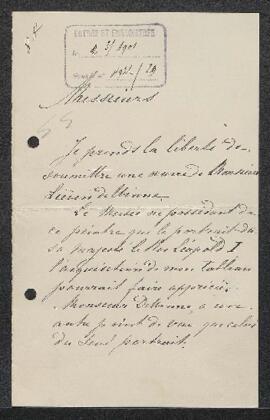 Messieurs
Je prends la liberté de
soumettre une œuvre de Monsieur
Liévin de Winne.
Le Musée ne possédant de
ce peintre que le portrait de
sa Majesté le Roi Léopold I
l'acquisition de mon tableau
pourrait faire apprécier
Monsieur De Winne, à un
autre point de vue que celui
du seul portrait.